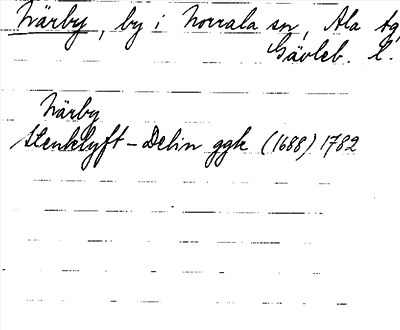 Närby, by i Norrala sn, Ala tg,
Gävleb. l.
Närby
Stenklyft - Delin ggk (1688) 1782